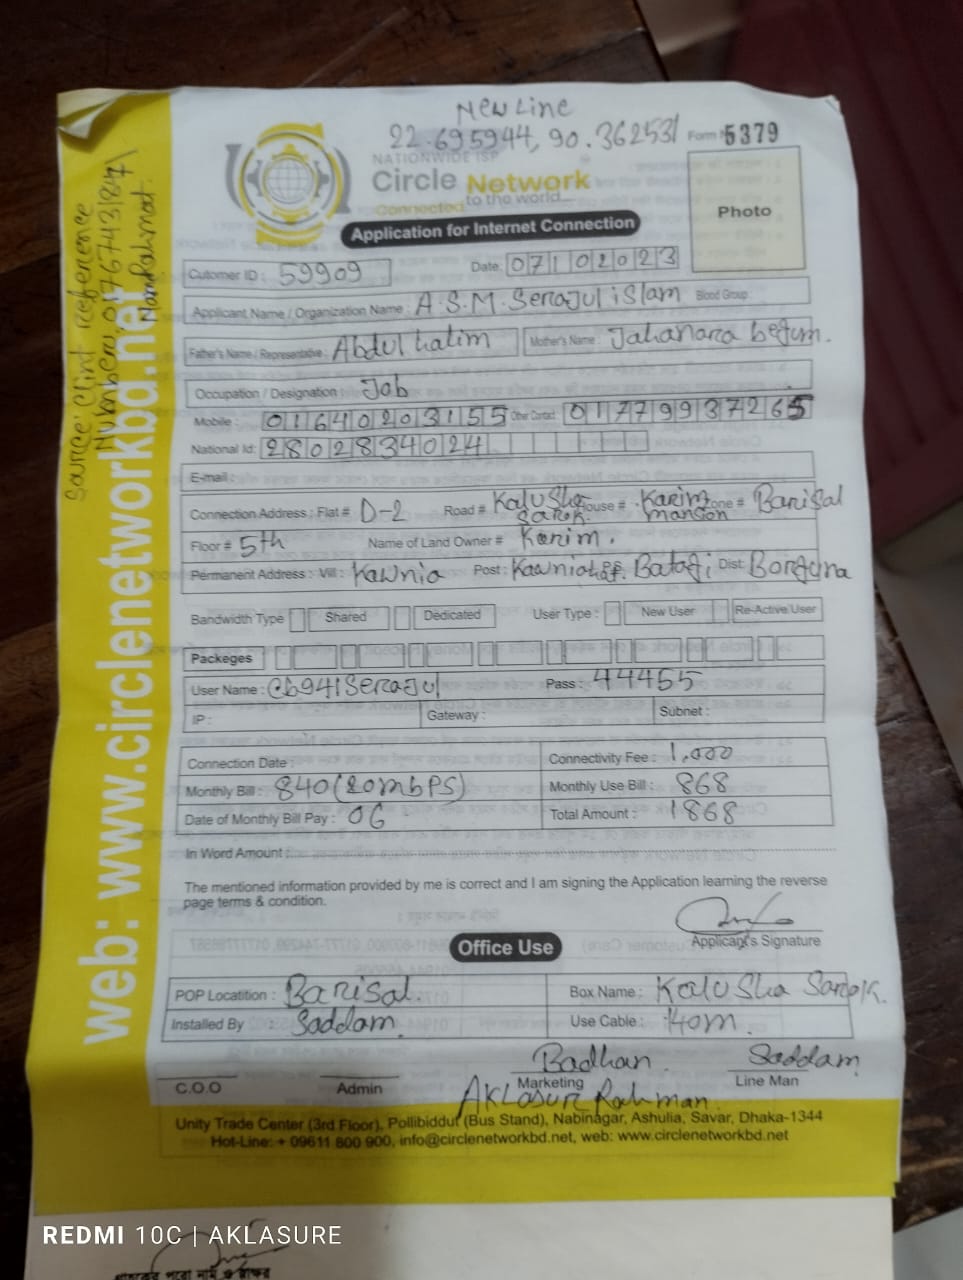 New Line
22.695944, 90.362531 Form № 5379
NATIONWIDE ISP
Circle Network
Connected to the world...
Application for Internet Connection
Photo
Cutomer ID : 59909 Date: 07102023
Applicant Name / Organization Name : A.S.M. Serajul islam Blood Group:
Father's Name / Representative : Abdul halim Mother's Name : Jahanara begum.
Occupation / Designation : Job
Mobile : 01640203155 Other Contact: 01779937265
National Id: 2802834024
E-mail :
Connection Address : Flat # D-2 Road # Kalu Sha Sarok. House # Karim mansion Zone # Barisal
Floor # 5th Name of Land Owner # Karim.
Permanent Address : Vill : Kawnia Post : Kawnia Batagi Dist: Borguna
Bandwidth Type Shared Dedicated User Type : New User Re-Active User
Packeges
User Name : cb941Serajul Pass : 44455
IP : Gateway : Subnet :
Connection Date : Connectivity Fee : 1,000
Monthly Bill : 840 (20mbPS) Monthly Use Bill : 868
Date of Monthly Bill Pay : 06 Total Amount : 1868
In Word Amount :
The mentioned information provided by me is correct and I am signing the Application learning the reverse
page terms & condition.
Applicant's Signature
Office Use
POP Locatition : Barisal. Box Name : Kalu Sha Sarok.
Installed By Saddam. Use Cable : 40m.
Badhan Saddam
C.O.O Admin Marketing Line Man
AKLasur Rahman
Unity Trade Center (3rd Floor), Pollibiddut (Bus Stand), Nabinagar, Ashulia, Savar, Dhaka-1344
Hot-Line: + 09611 800 900, info@circlenetworkbd.net, web: www.circlenetworkbd.net
web: www.circlenetworkbd.net
Source: Clint reference
Name: Rahmat.
REDMI 10C | AKLASURE